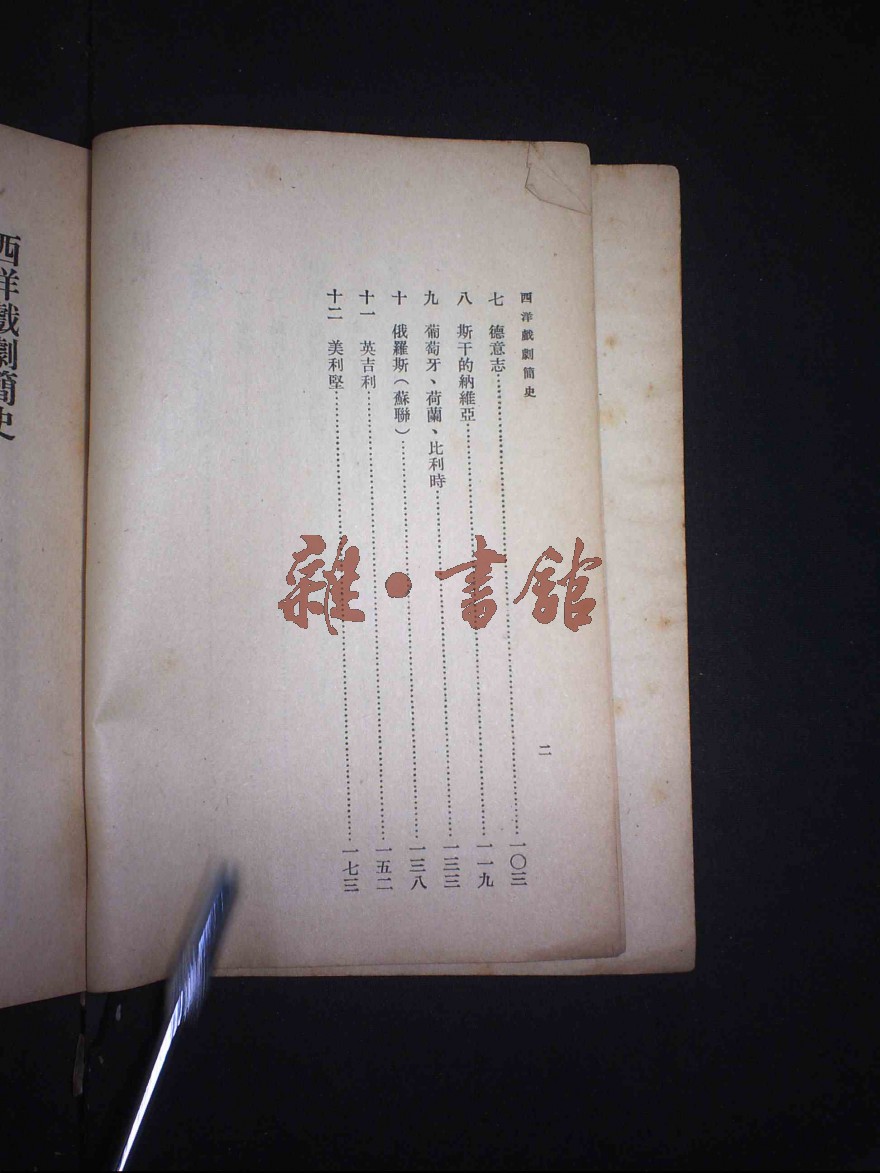 西洋戲劇簡史
二
七 德意志……一〇三
八 斯干的納維亞……一一九
九 葡萄牙、荷蘭、比利時……一三三
十 俄羅斯(蘇聯)……一三八
十一 英吉利……一五二
十二 美利堅……一七三
西洋戲劇簡史
雜·書館